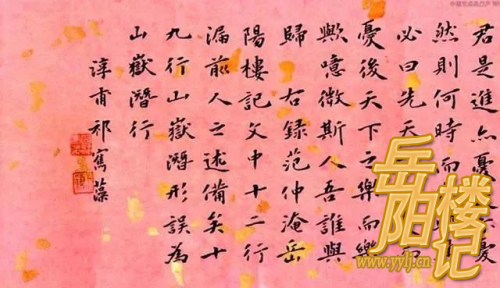 君是進亦憂亦憂
然則何時而
必曰先天
憂後天下之樂而樂
歟噫微斯人吾誰與
歸 右録范仲淹岳
陽樓記文中十二行
漏前人之述備矣十
九行山嶽潛形誤為
山嶽潛行
淳甫祁寯藻
岳阳楼记
www.yylj.cn